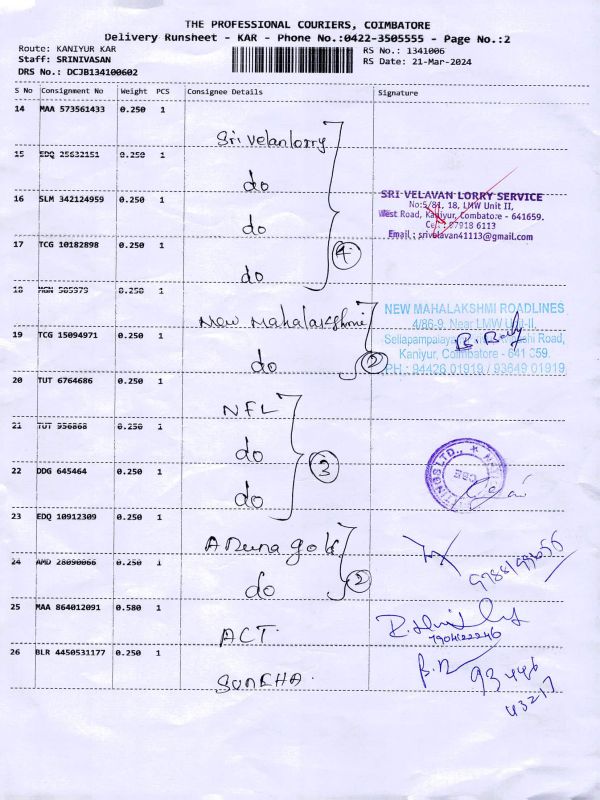 THE PROFESSIONAL COURIERS, COIMBATORE
Delivery Runsheet - KAR - Phone No.:0422-3505555 - Page No.:2
Route: KANIYUR KAR
RS No.: 1341006
Staff: SRINIVASAN
RS Date: 21-Mar-2024
DRS No.: DCJB134100602
S No Consignment No Weight PCS Consignee Details Signature
14 MAA 573561433 0.250 1
Sri velanlorry
15 EDQ 25632151 0.250 1
do
16 SLM 342124959 0.250 1
do
17 TCG 10182898 0.250 1
do 4
SRI VELAVAN LORRY SERVICE
No:5/81, 18, LMW Unit II,
West Road, Kaniyur, Combatore - 641659.
Cell: 97918 6113
Email : srivelavan41113@gmail.com
18 0.250 1
New Mahalakshmi
19 TCG 15094971 0.250 1
do 2
NEW MAHALAKSHMI ROADLINES
4/86-9, Near LMW Unit-II,
Road,
Kaniyur, Coimbatore - 641 659.
PH : 94426 01919 / 93649 01919
20 TUT 6764686 0.250 1
NFL
21 TUT 956868 0.250 1
do
22 DDG 645464 0.250 1
do 3
23 EDQ 10912309 0.250 1
Aruna gold
24 AMD 28090066 0.250 1
do 2
25 MAA 864012091 0.580 1
ACT.
26 BLR 4450531177 0.250 1
93446
43217